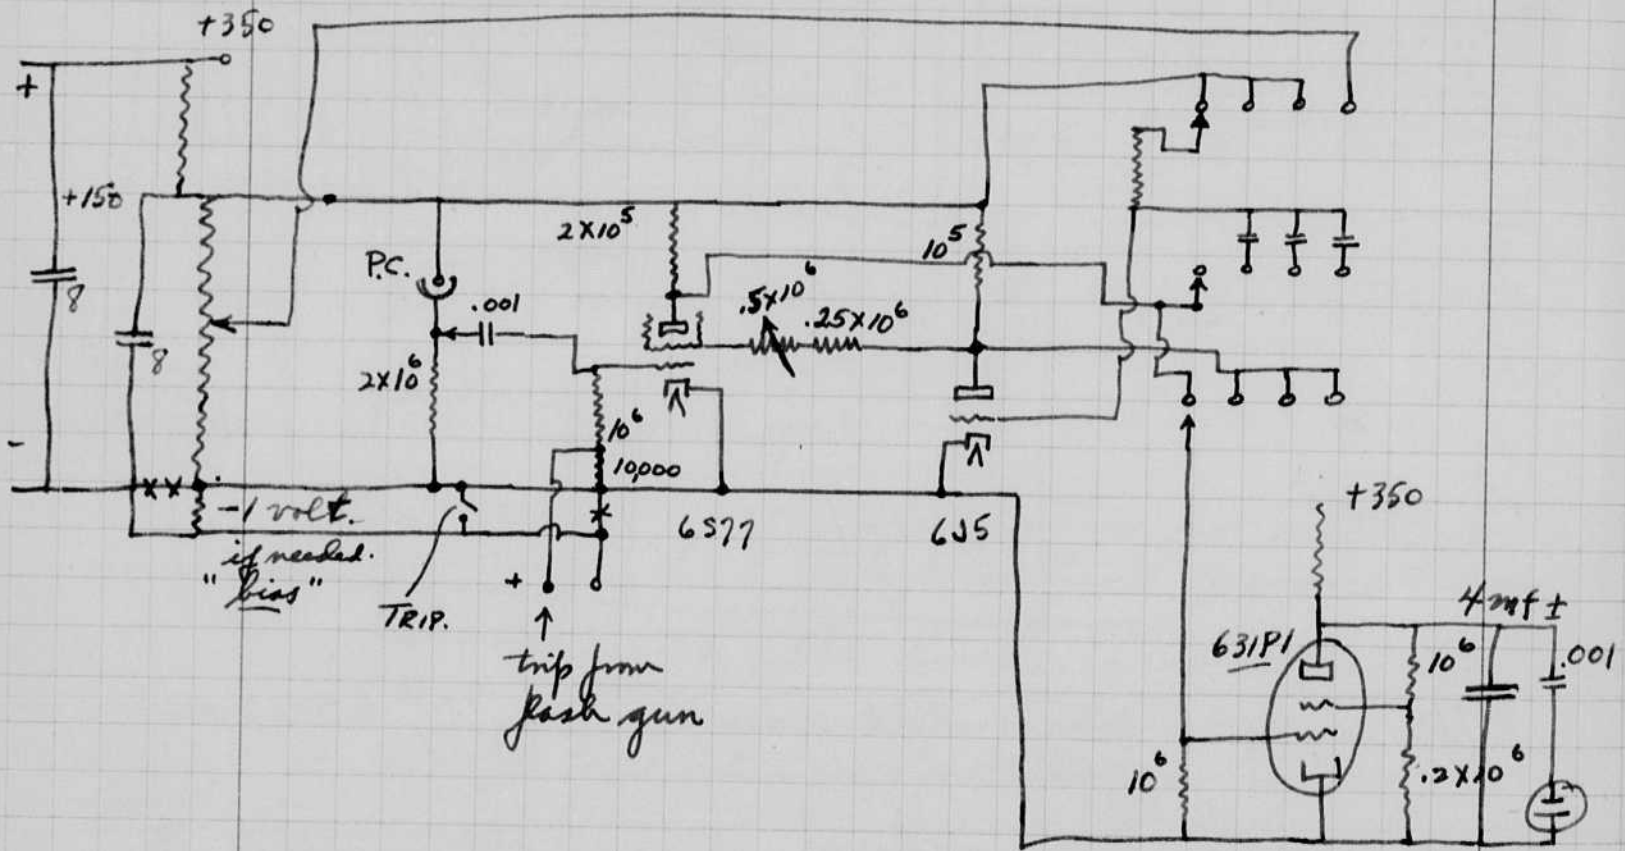 +350
+
+150
8
8
-
P.C.
.001
2×10⁶
2×10⁵
.5×10⁶
.25×10⁶
10⁵
10⁶
10,000
-1 volt.
if needed.
"bias"
TRIP.
+
trip from
flash gun
6SJ7
6J5
+350
631P1
4 mf ±
10⁶
.001
10⁶
.2×10⁶